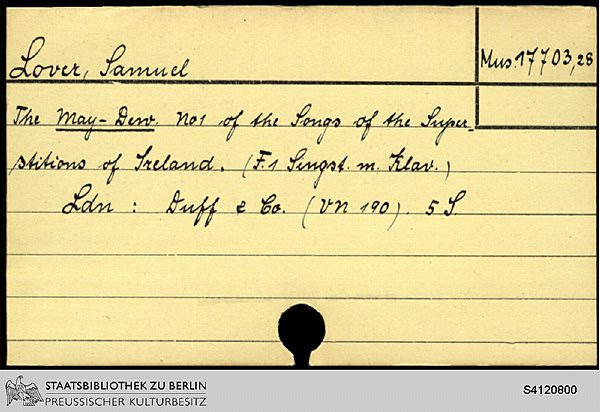 Lover, Samuel
Mus. 17703,28
The May-Dew. No1 of the Songs of the Super-
stitions of Ireland. (F. 1 Singst. m. Klav.)
Ldn : Duff & Co. (VN 190). 5 S.
STAATSBIBLIOTHEK ZU BERLIN
PREUSSISCHER KULTURBESITZ
S4120800